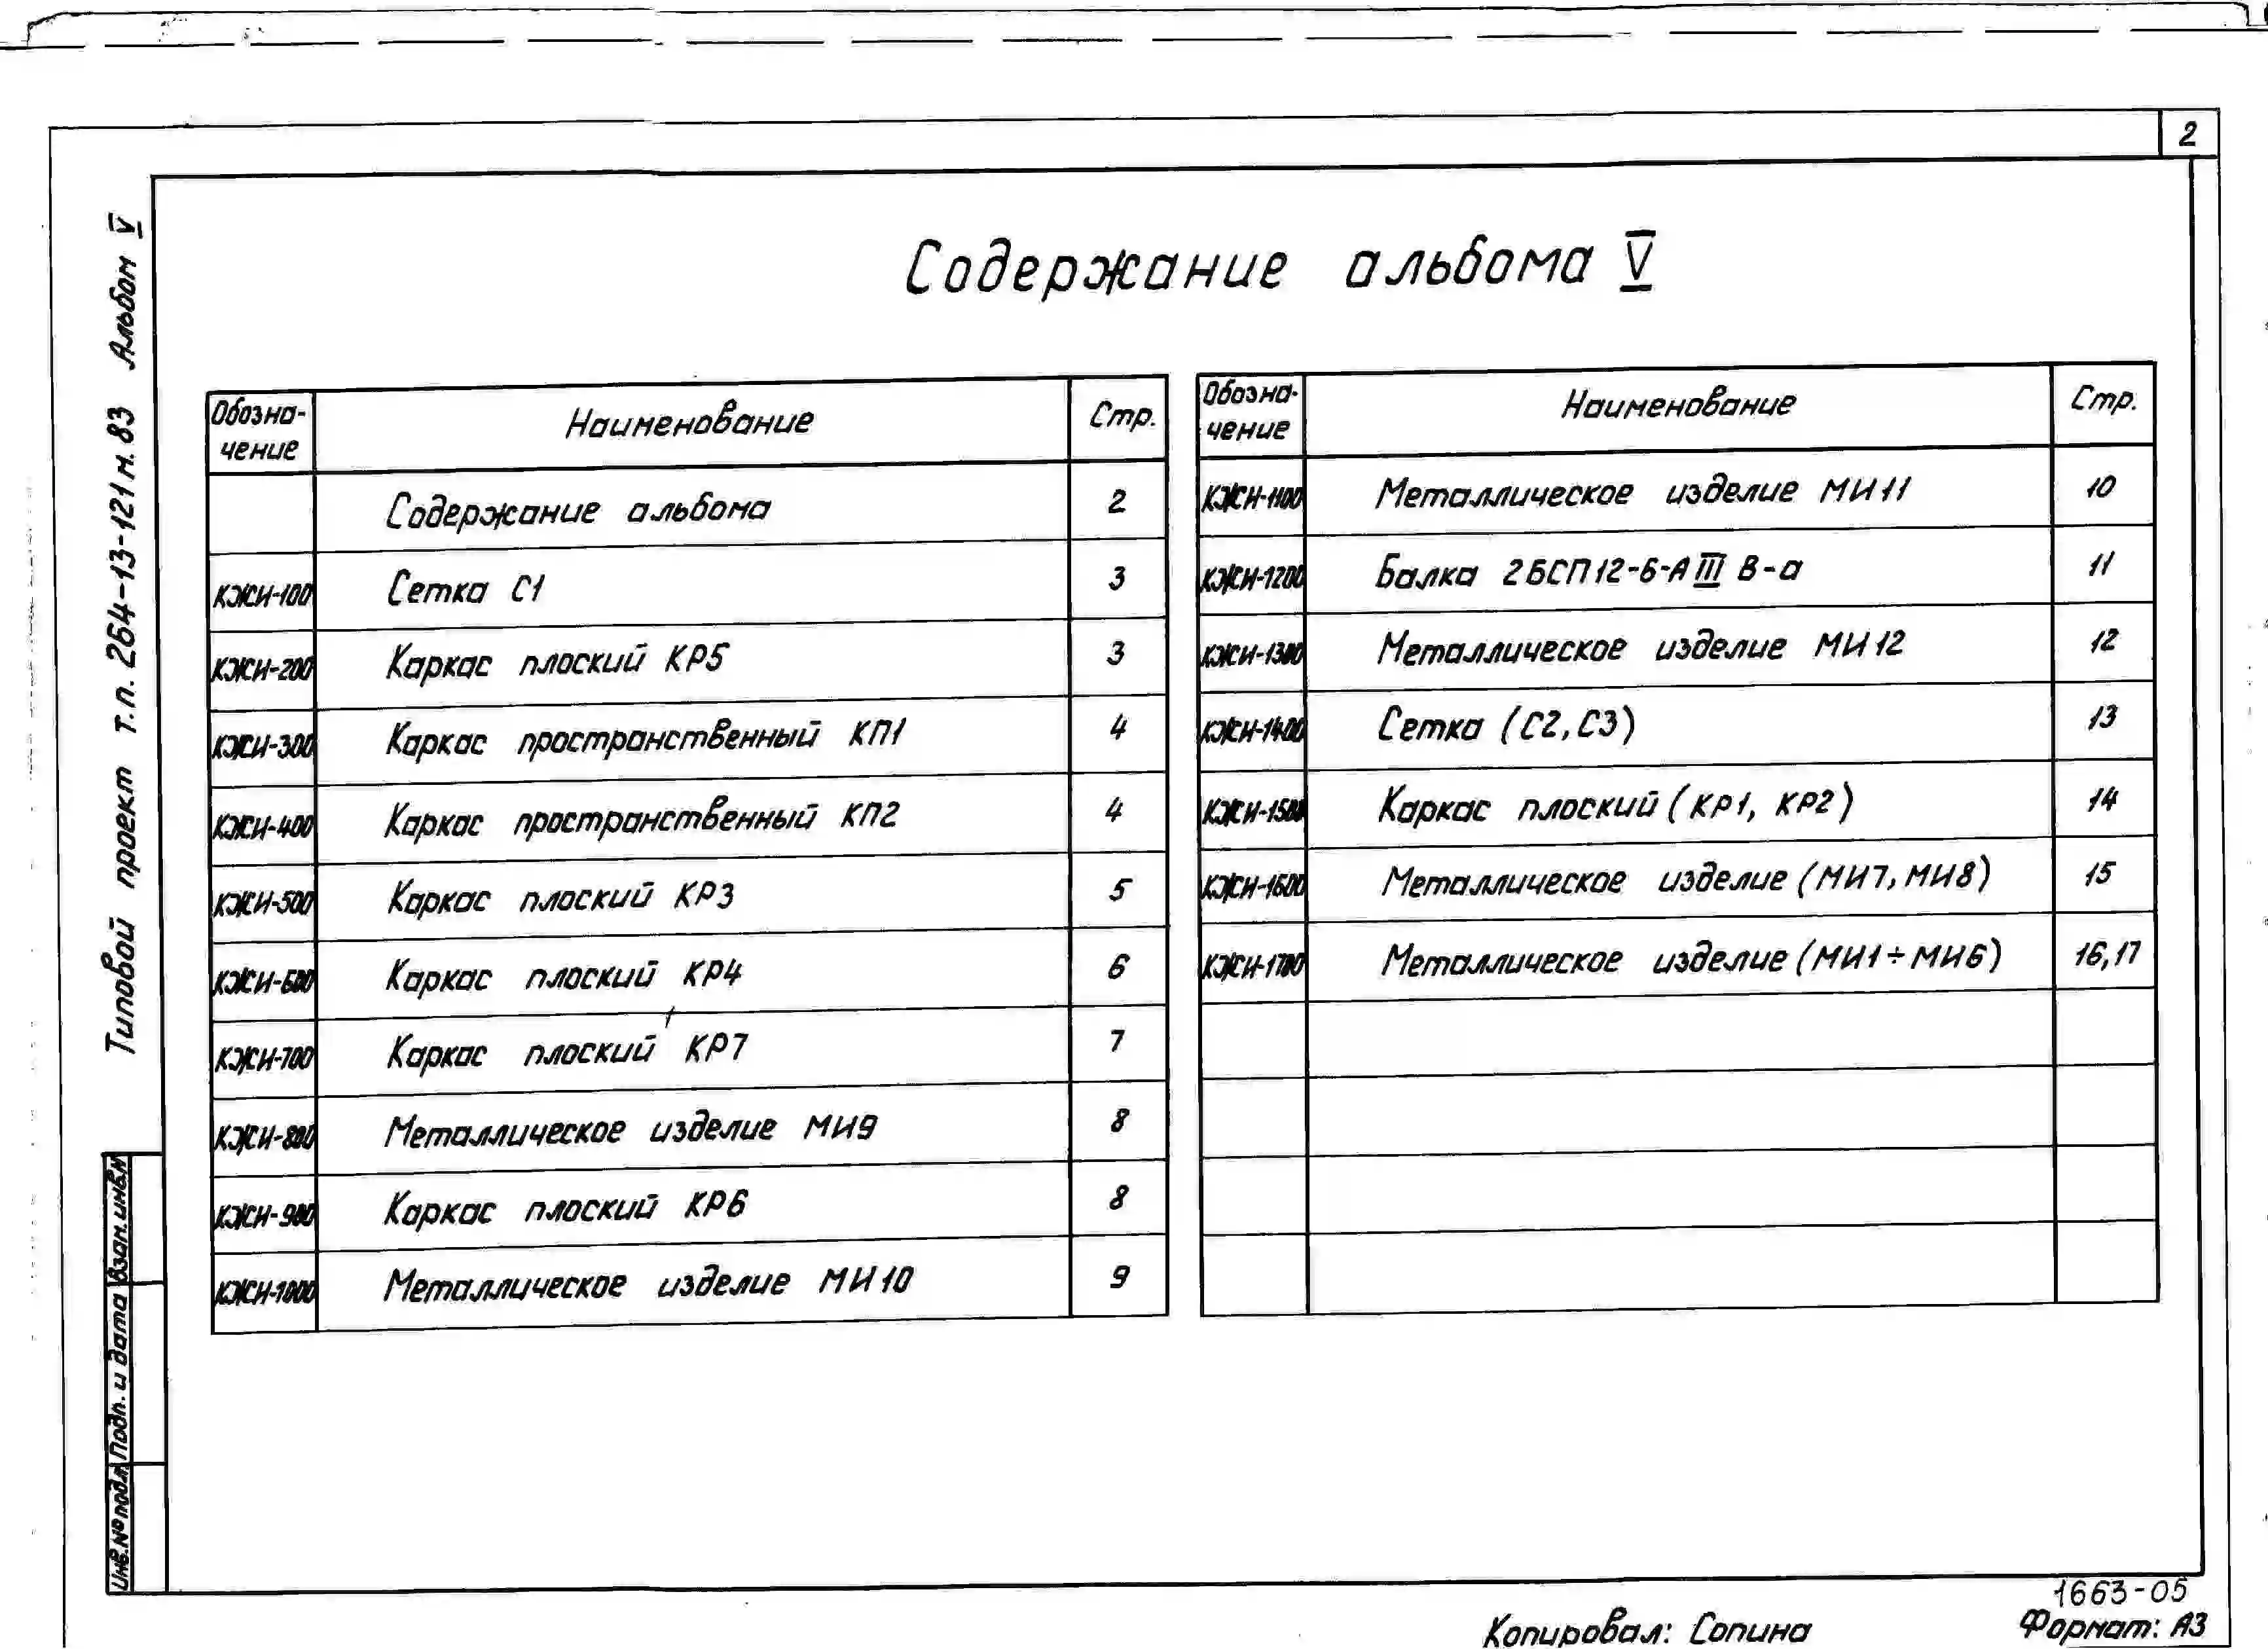 2
Содержание альбома V
Типовой проект т.п. 264-13-121м.83 Альбом V
Обозна-чение Наименование Стр.
Содержание альбома 2
КЖИ-100 Сетка С1 3
КЖИ-200 Каркас плоский КР5 3
КЖИ-300 Каркас пространственный КП1 4
КЖИ-400 Каркас пространственный КП2 4
КЖИ-500 Каркас плоский КР3 5
КЖИ-600 Каркас плоский КР4 6
КЖИ-700 Каркас плоский КР7 7
КЖИ-800 Металлическое изделие МИ9 8
КЖИ-900 Каркас плоский КР6 8
КЖИ-1000 Металлическое изделие МИ10 9
Обозна-чение Наименование Стр.
КЖИ-1100 Металлическое изделие МИ11 10
КЖИ-1200 Балка 2БСП12-6-АIII В-а 11
КЖИ-1300 Металлическое изделие МИ12 12
КЖИ-1400 Сетка (С2,С3) 13
КЖИ-1500 Каркас плоский (КР1, КР2) 14
КЖИ-1600 Металлическое изделие (МИ7, МИ8) 15
КЖИ-1700 Металлическое изделие (МИ1÷МИ6) 16,17
Взам.инв.№
Подп. и дата
Инв.№ подл.
1663-05
Копировал: Сопина Формат: А3